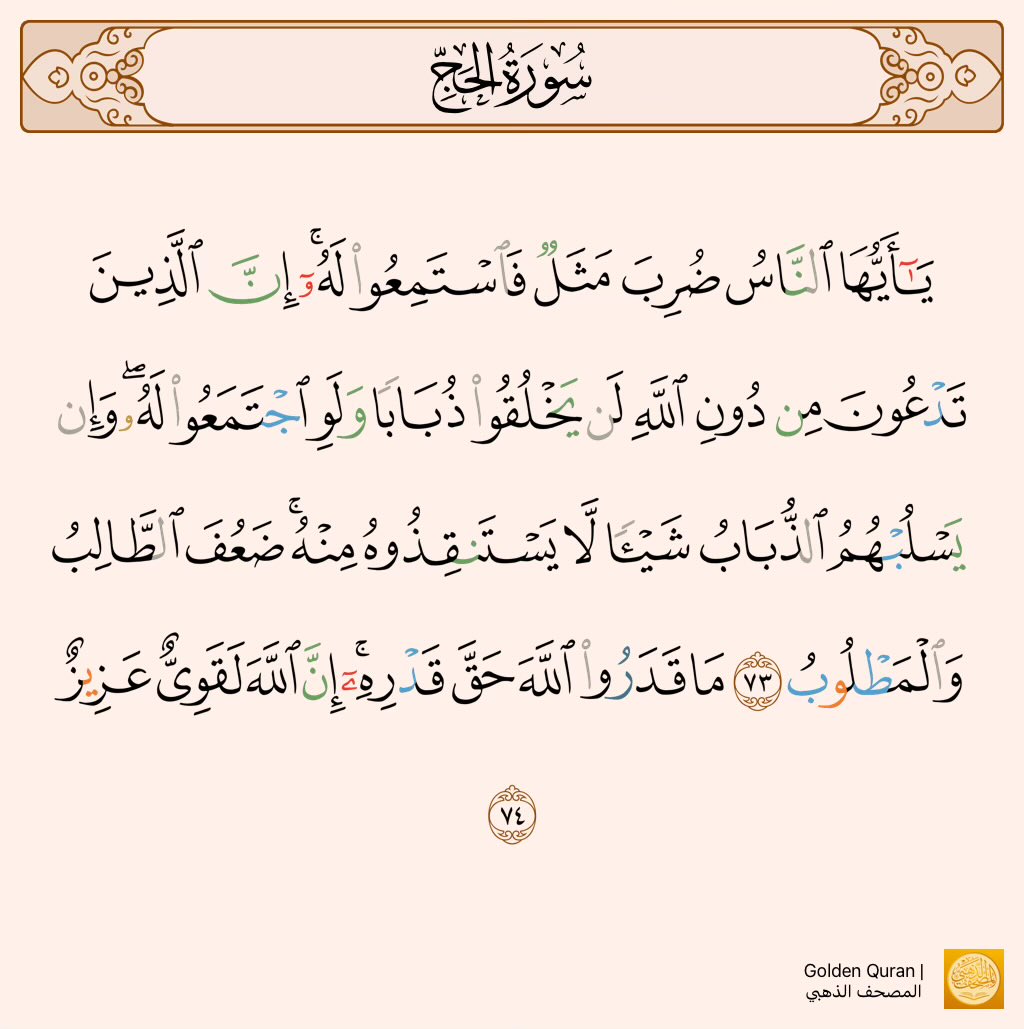 سُورَةُ الحَجِّ
يَـٰٓأَيُّهَا ٱلنَّاسُ ضُرِبَ مَثَلٌۭ فَٱسْتَمِعُوا۟ لَهُۥٓ ۚ إِنَّ ٱلَّذِينَ
تَدْعُونَ مِن دُونِ ٱللَّهِ لَن يَخْلُقُوا۟ ذُبَابًۭا وَلَوِ ٱجْتَمَعُوا۟ لَهُۥ ۖ وَإِن
يَسْلُبْهُمُ ٱلذُّبَابُ شَيْـًۭٔا لَّا يَسْتَنقِذُوهُ مِنْهُ ۚ ضَعُفَ ٱلطَّالِبُ
وَٱلْمَطْلُوبُ ٧٣ مَا قَدَرُوا۟ ٱللَّهَ حَقَّ قَدْرِهِۦٓ ۚ إِنَّ ٱللَّهَ لَقَوِىٌّ عَزِيزٌ
٧٤
Golden Quran |
المصحف الذهبي